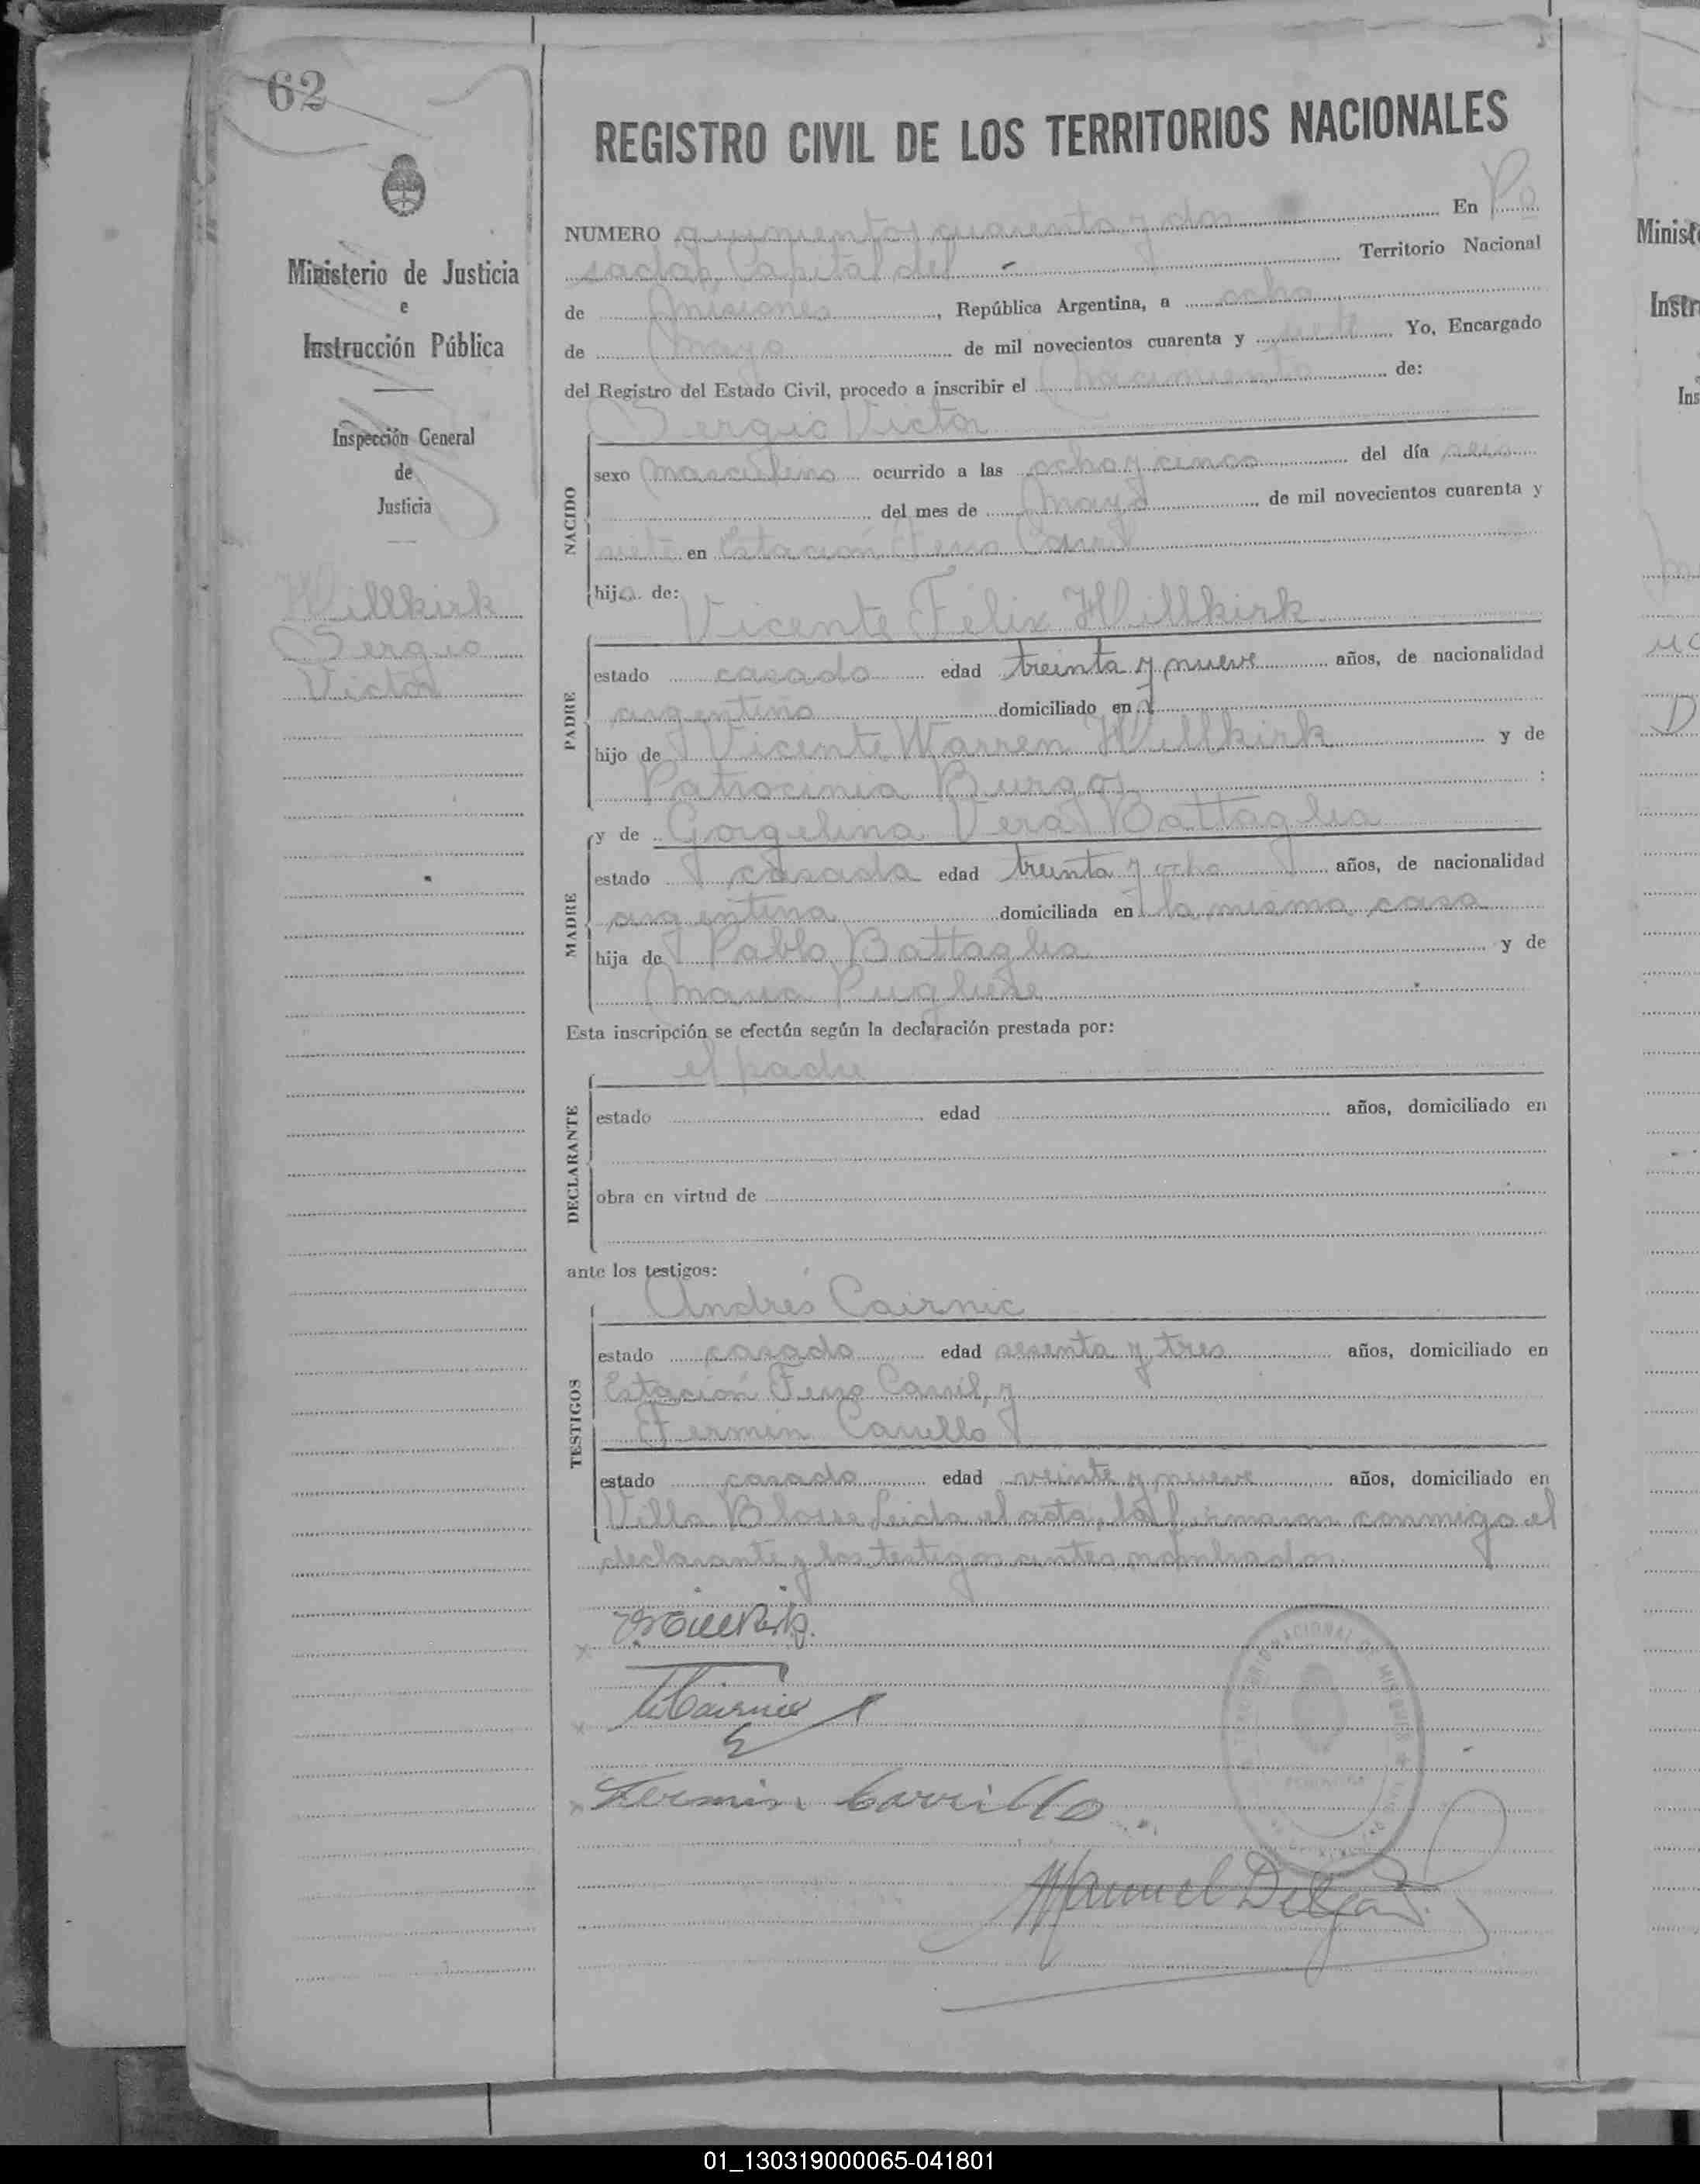 62
REGISTRO CIVIL DE LOS TERRITORIOS NACIONALES
Ministerio de Justicia
e
Instrucción Pública
Inspección General
de
Justicia
Willkirk
Sergio
Victor
NUMERO quinientos cuarenta y dos En Po
sadas Capital del Territorio Nacional
de Misiones, República Argentina, a ocho
de Mayo de mil novecientos cuarenta y siete Yo, Encargado
del Registro del Estado Civil, procedo a inscribir el Nacimiento de:
Sergio Victor
NACIDO
sexo masculino ocurrido a las ocho y cinco del día seis
del mes de Mayo de mil novecientos cuarenta y
siete en Estación Ferro Carril
hijo de:
Vicente Félix Willkirk
PADRE
estado casado edad treinta y nueve años, de nacionalidad
argentino domiciliado en
hijo de Vicente Warren Willkirk y de
Patrocinia Burgos :
MADRE
y de Gorgelina Vera Battaglia
estado casada edad treinta y ocho años, de nacionalidad
argentina domiciliada en la misma casa
hija de Pablo Battaglia y de
Maria Pugliese
Esta inscripción se efectúa según la declaración prestada por:
el padre
DECLARANTE
estado edad años, domiciliado en
obra en virtud de
ante los testigos:
Andrés Cairnie
TESTIGOS
estado casado edad sesenta y tres años, domiciliado en
Estación Ferro Carril, y
Fermin Carrillo
estado casado edad veinte y nueve años, domiciliado en
Villa Leida el acta, la firmaron conmigo el
declarante y los testigos antes nombrados
Fermin Carrillo
Manuel
Minist
Instr
Ins
01_130319000065-041801